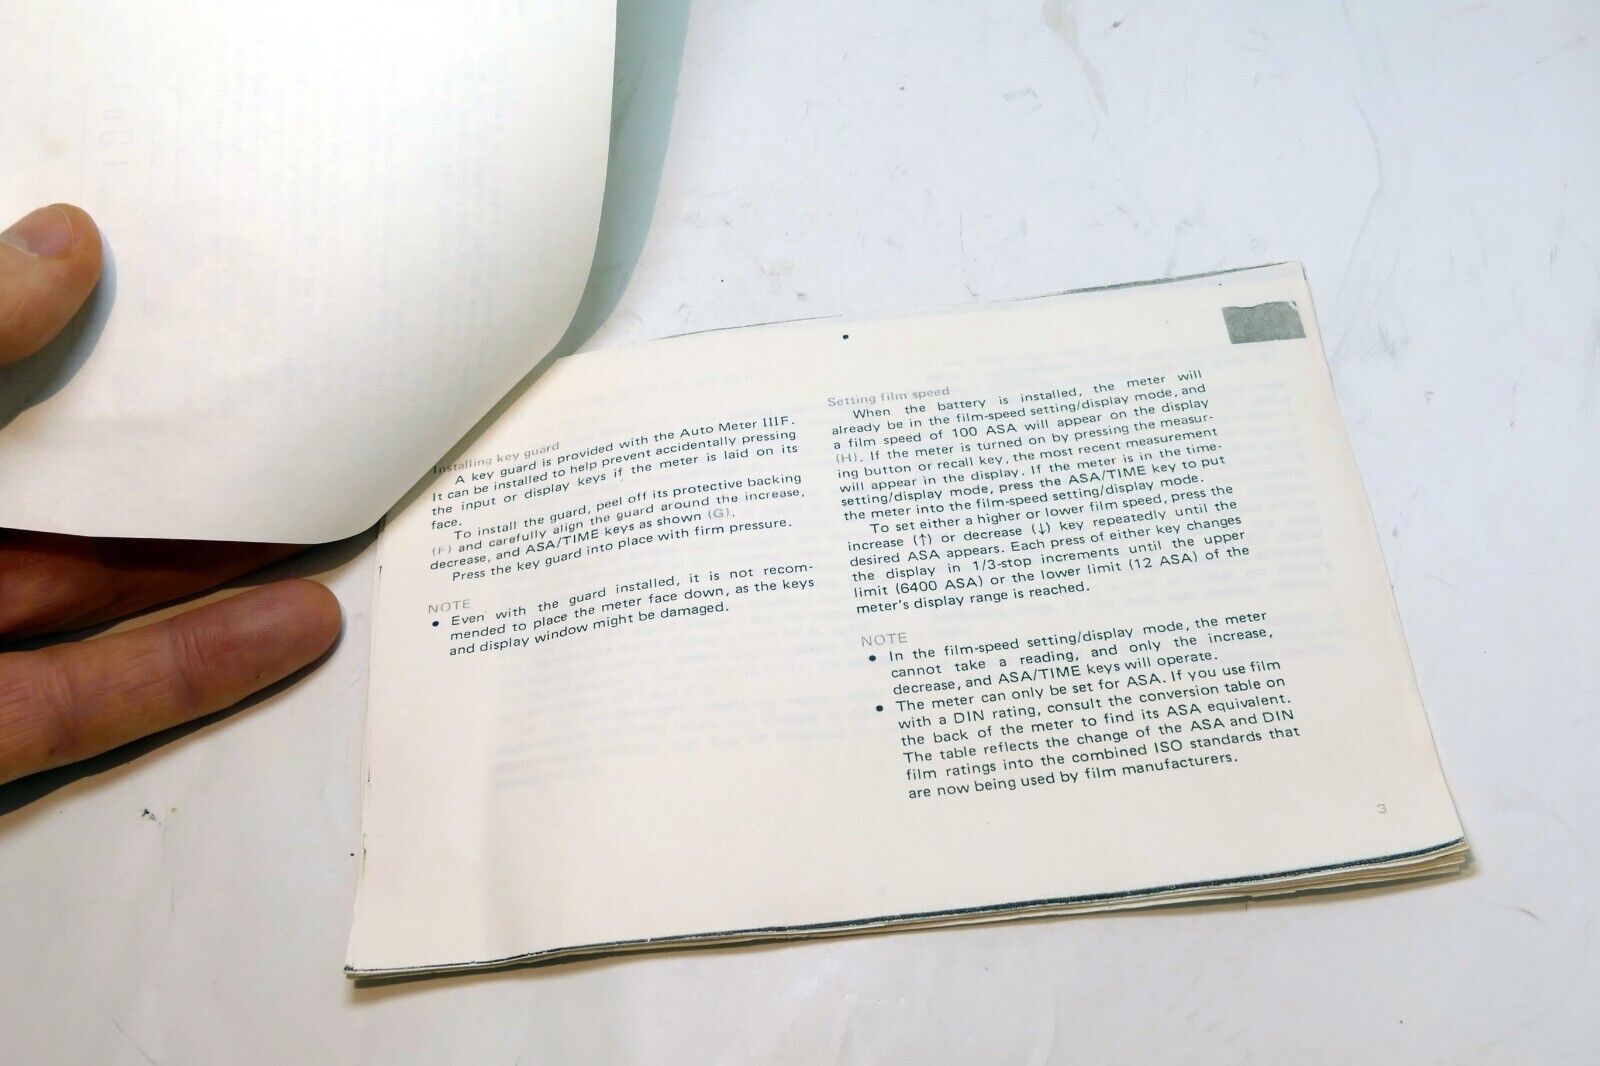 Installing key guard
A key guard is provided with the Auto Meter IIIF.
It can be installed to help prevent accidentally pressing
the input or display keys if the meter is laid on its
face.
To install the guard, peel off its protective backing
(F) and carefully align the guard around the increase,
decrease, and ASA/TIME keys as shown (G).
Press the key guard into place with firm pressure.
NOTE
• Even with the guard installed, it is not recom-
mended to place the meter face down, as the keys
and display window might be damaged.
Setting film speed
When the battery is installed, the meter will
already be in the film-speed setting/display mode, and
a film speed of 100 ASA will appear on the display
(H). If the meter is turned on by pressing the measur-
ing button or recall key, the most recent measurement
will appear in the display. If the meter is in the time-
setting/display mode, press the ASA/TIME key to put
the meter into the film-speed setting/display mode.
To set either a higher or lower film speed, press the
increase (↑) or decrease (↓) key repeatedly until the
desired ASA appears. Each press of either key changes
the display in 1/3-stop increments until the upper
limit (6400 ASA) or the lower limit (12 ASA) of the
meter's display range is reached.
NOTE
• In the film-speed setting/display mode, the meter
cannot take a reading, and only the increase,
decrease, and ASA/TIME keys will operate.
• The meter can only be set for ASA. If you use film
with a DIN rating, consult the conversion table on
the back of the meter to find its ASA equivalent.
The table reflects the change of the ASA and DIN
film ratings into the combined ISO standards that
are now being used by film manufacturers.
3